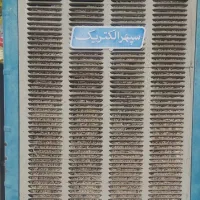 سپهر الکتریک